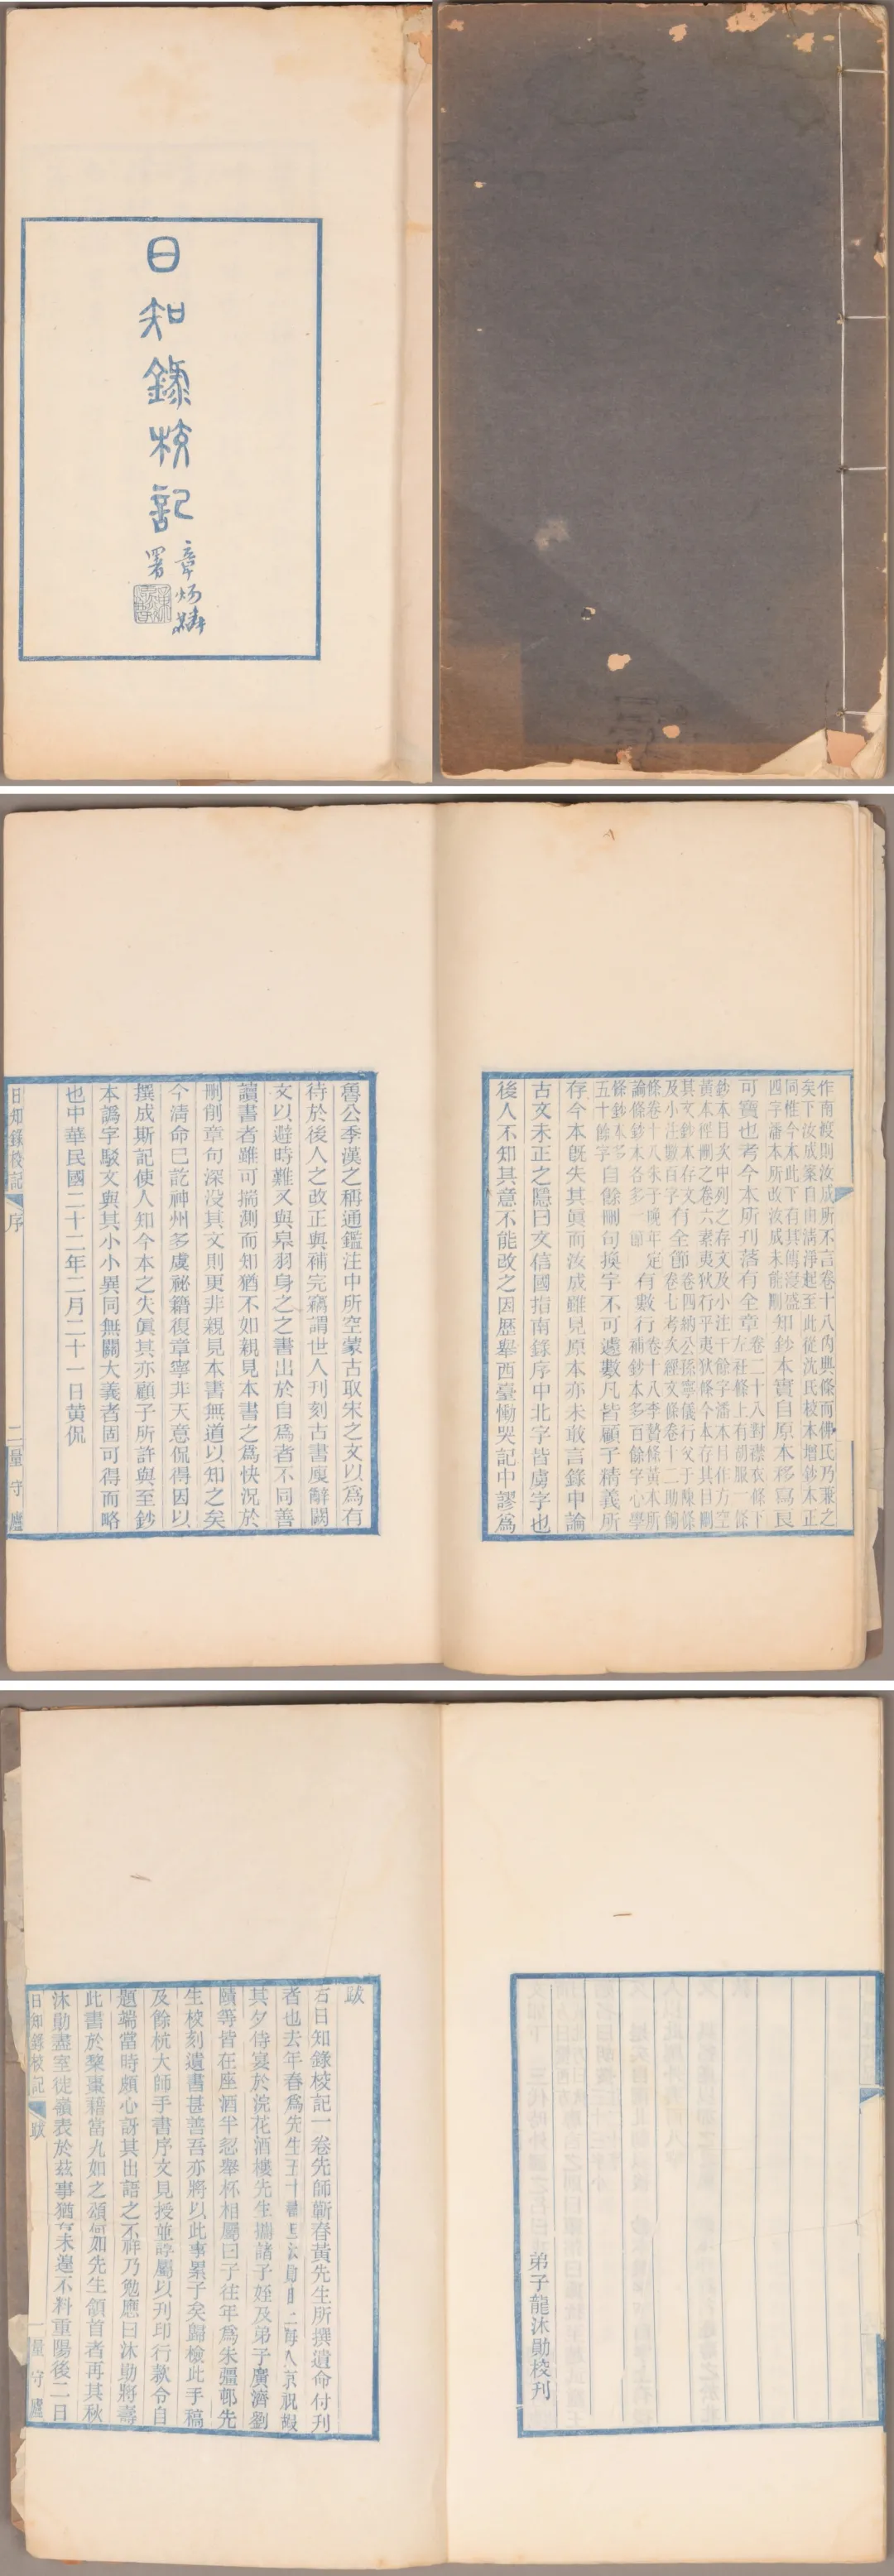 日知錄校記
章炳麟
署
作南渡則汝成所不言卷十八內典條而佛氏乃兼之
矣下汝成案自由清淨起至此從沈氏校本增鈔本正
同惟今本此下有其傳寖盛
四字潘本所改汝成未能刪
知鈔本實自原本移寫良
可寶也考今本所刊落有全章
卷二十八對襟衣條下
左衽條上有胡服一條
鈔本目次中列之存文及小注千餘字潘本目作方空
黃本並刪之卷六素夷狄行乎夷狄條今本存其目刪
其文鈔本存文
及小注數百字
有全節
卷四納公孫寧儀行父于陳條
卷七考次經文條卷十二助餉
條卷十八朱子晚年定
論條鈔本各多一節
有數行
卷十八李贄條黃本所
補鈔本多百餘字心學
條鈔本多
五十餘字
自餘刪句換字不可遽數凡皆顧子精義所
存今本既失其眞而汝成雖見原本亦未敢言錄中論
古文未正之隱曰文信國指南錄序中北字皆虜字也
後人不知其意不能改之因歷舉西臺慟哭記中謬爲
魯公季漢之稱通鑑注中所空蒙古取宋之文以爲有
待於後人之改正與補完竊謂世人刊刻古書廋辭闕
文以避時難又與皋羽身之之書出於自爲者不同善
讀書者雖可揣測而知猶不如親見本書之爲快況於
刪削章句深沒其文則更非親見本書無道以知之矣
今淸命已訖神州多虞祕籍復章寧非天意侃得因以
撰成斯記使人知今本之失眞其亦顧子所許與至鈔
本譌字駁文與其小小異同無關大義者固可得而略
也中華民國二十二年二月二十一日黃侃
日知錄校記
序
二
量守廬
弟子龍沐勛校刊
跋
右日知錄校記一卷先師蘄春黃先生所撰遺命付刊
者也去年春爲先生五十 上海入京祝嘏
其夕侍宴於浣花酒樓先生攜諸子姪及弟子廣濟劉
賾等皆在座酒半忽舉杯相屬曰子往年爲朱彊邨先
生校刻遺書甚善吾亦將以此事累子矣歸檢此手稿
及餘杭大師手書序文見授並諄屬以刊印行款令自
題端當時頗心訝其出語之不祥乃勉應曰沐勛將壽
此書於棃棗藉當九如之頌何如先生頷首者再其秋
沐勛盡室徙嶺表於茲事猶有未遑不料重陽後二日
日知錄校記
跋
一
量守廬